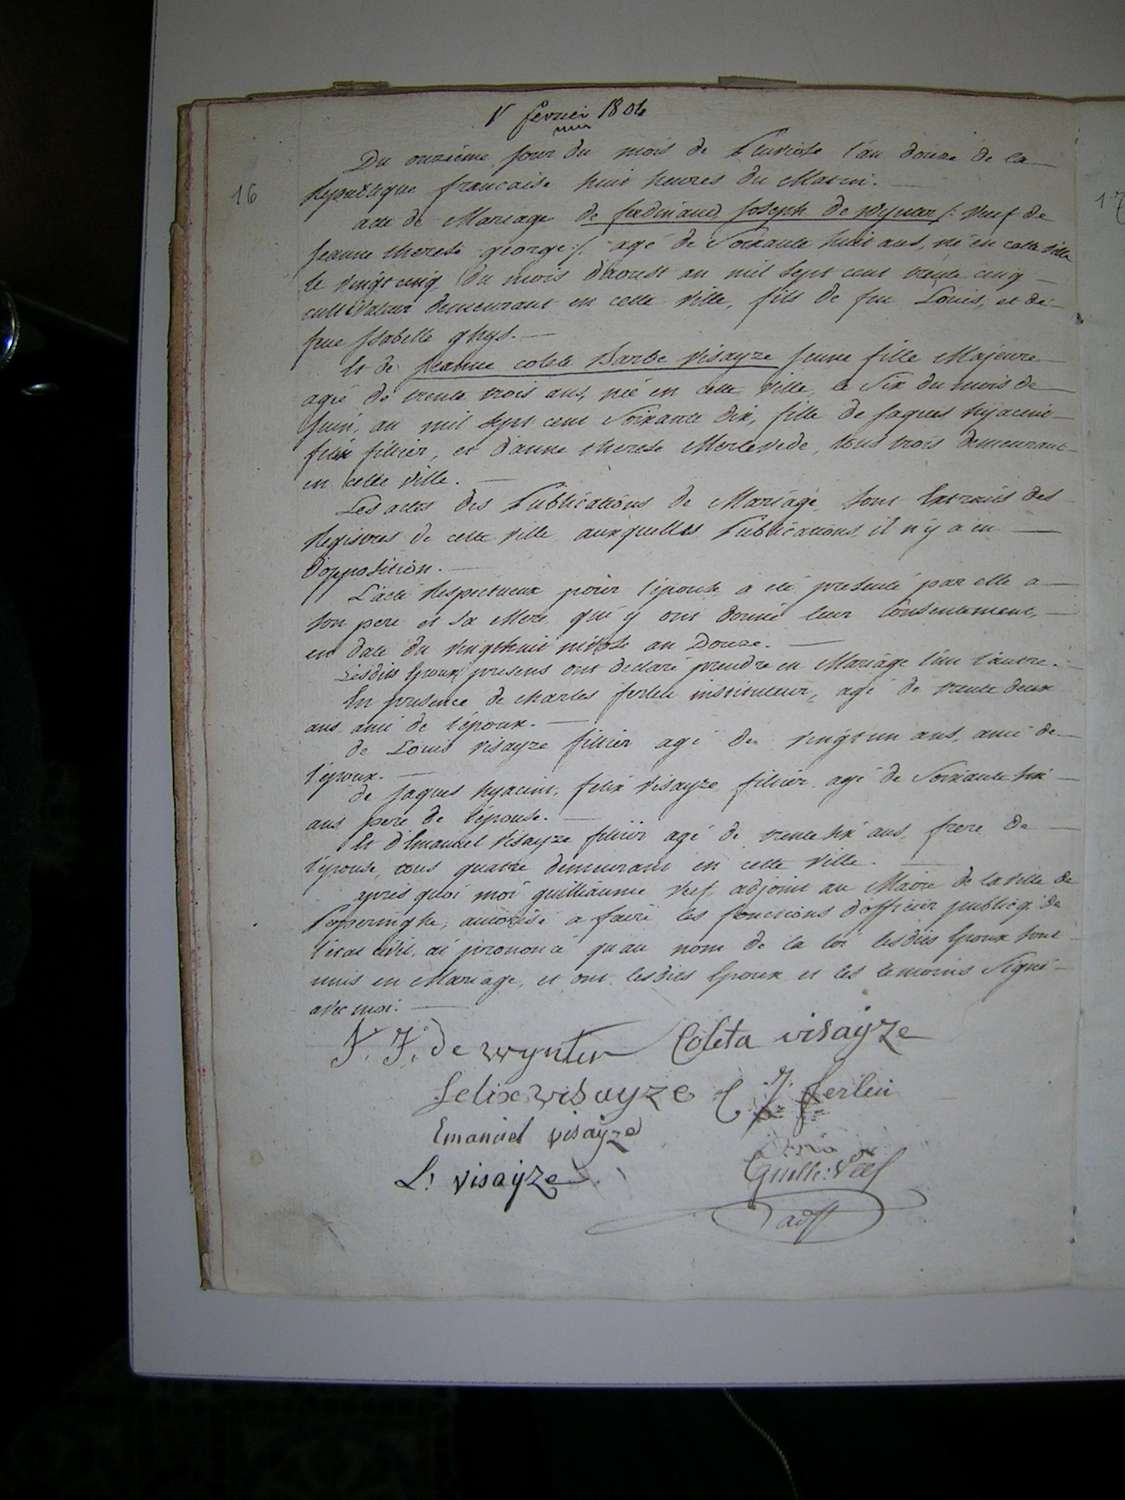 1 fevrier 1804
16
17
Du onzième Jour du mois de Pluviose l'an douze de la
Republique francaise huit heures du Matin.
acte de Mariage de ferdinand Joseph de wynter /: veuf de
Jeanne therese george :/ agé de Soixante huit ans, né en cette ville
le vingt cinq du mois d'aoust an mil sept cent trente cinq
cultivateur demeurant en cette ville, fils de feu Louis, et de
feue Isabelle ghys.
Et de Jeanne colete Barbe visayze Jeune fille Majeure
agée de trente trois ans, née en cette ville, le Six du mois de
Juin, an mil sept cent Soixante dix, fille de Jaques hyacint
felix filtier, et d'anne therese Merlevede, tous trois demeurant
en cette ville.
Les actes des Publications de Mariage Sont Extraits des
Registres de cette ville auxquelles Publications, il n'y a eu
d'opposition.
L'acte Respectueux pour l'epouse a été presenté par elle a
son pere et sa Mere qui y ont donné leur Consentement,
en date du vingthuit nivose an Douze.
Lesdits Epoux presens ont declaré prendre en Mariage l'un l'autre.
En presence de charles ferleu instituteur, agé de trente deux
ans ami de l'époux.
de Louis visayze filtier agé de vingt un ans, ami de
l'époux.
de Jaques hyacint, felix visayze filtier agé de Soixante six
ans pere de l'épouse.
Et d'Emanuel visayze filtier agé de trente six ans, frere de
l'épouse, tous quatre demeurant en cette ville.
après quoi moi guilliaume Veef adjoint au Maire de la ville de
Poperinghe, autorisé a faire les fonctions d'officier publicq de
l'etat civil, ai prononcé qu'au nom de la loi lesdits Epoux sont
unis en Mariage, et ont lesdits Epoux et les temoins Signé
avec moi.
F. J. de wynter Coleta visayze
felix visayze C J ferleu
Emanuel visayze
L: visayze Guille: Veef
adjt